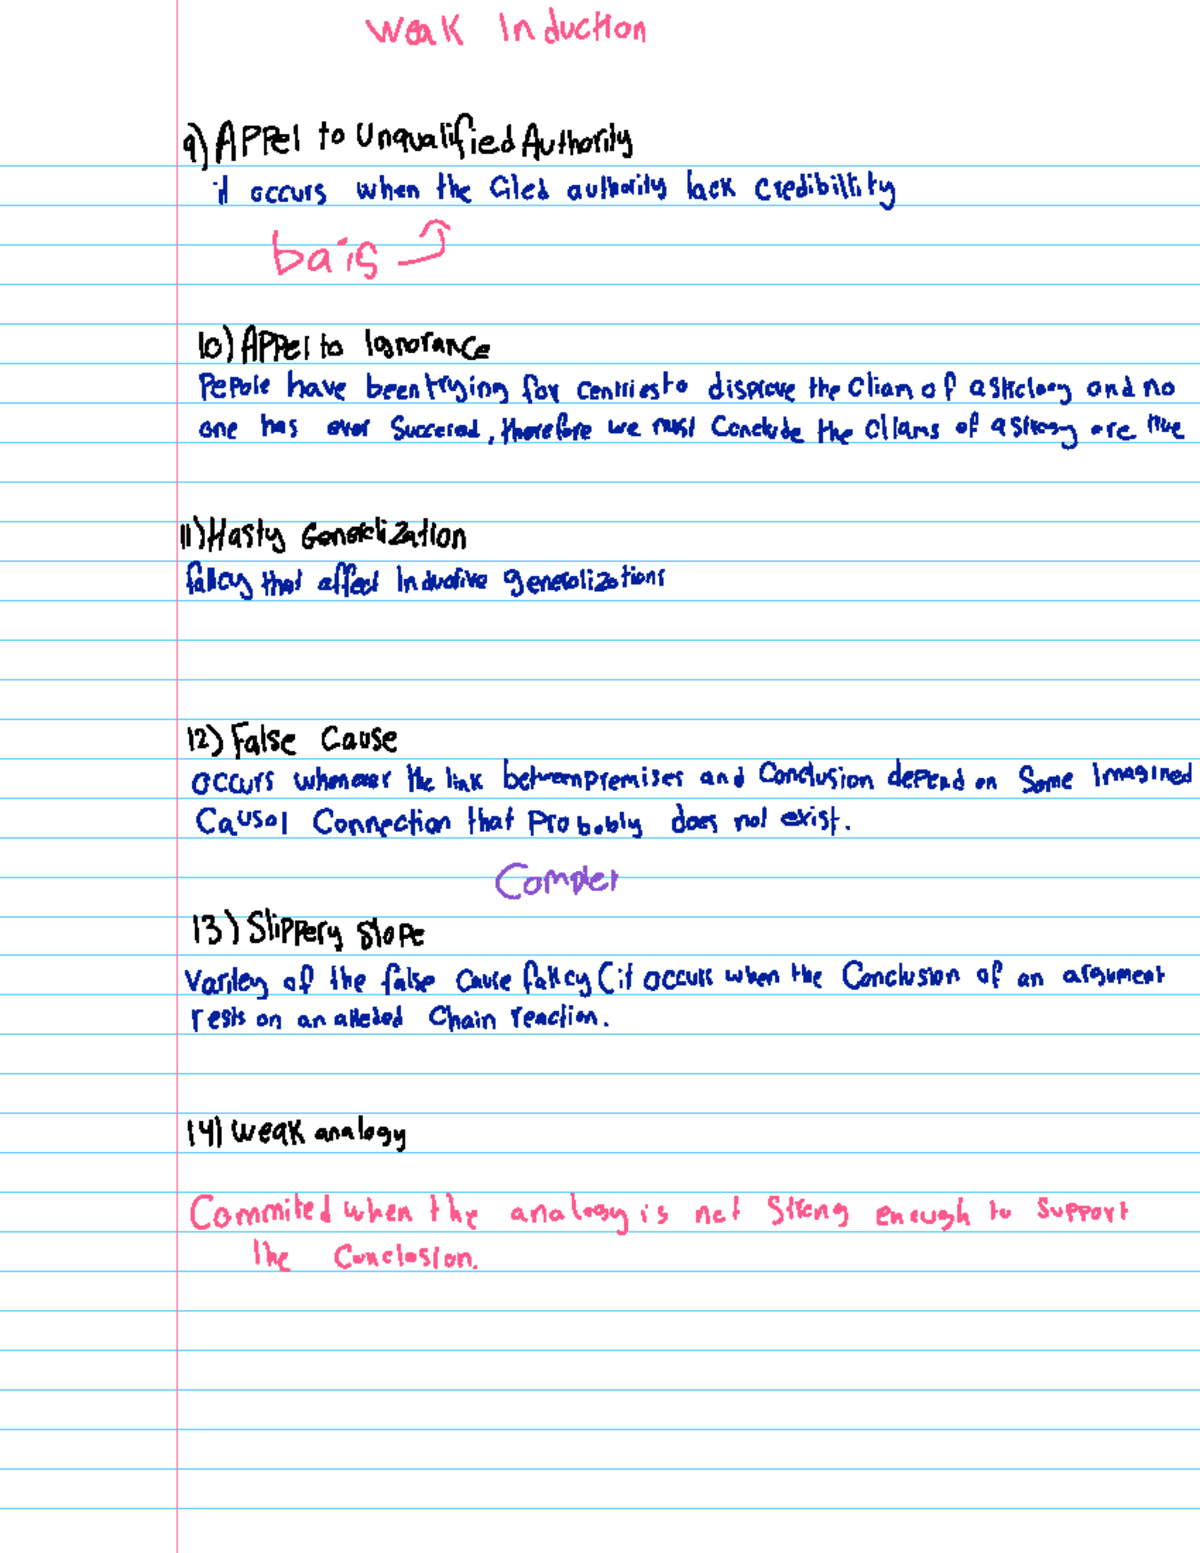 Weak Induction
9) APPel to Unqualified Authority
it occurs when the Cited authority lack credibility
bais
10) APPel to Ignorance
Pepole have been trying for centries to disprove the Cliam of astrology and no
one has ever Succeed, therefore we must Conclude the Cliams of astrology are true
11) Hasty Generalization
fallcy that affect Inductive generalizations
12) False Cause
occurs whenever the link between premises and Conclusion depend on Some Imagined
Causal Connection that Probably does not exist.
Complet
13) Slippery Slope
Varitey of the false Cause fallcy (it occurs when the Conclusion of an argument
rests on an alleded Chain reaction.
14) Weak analogy
Commited when the analogy is not Strong enough to Support
the Conclusion.